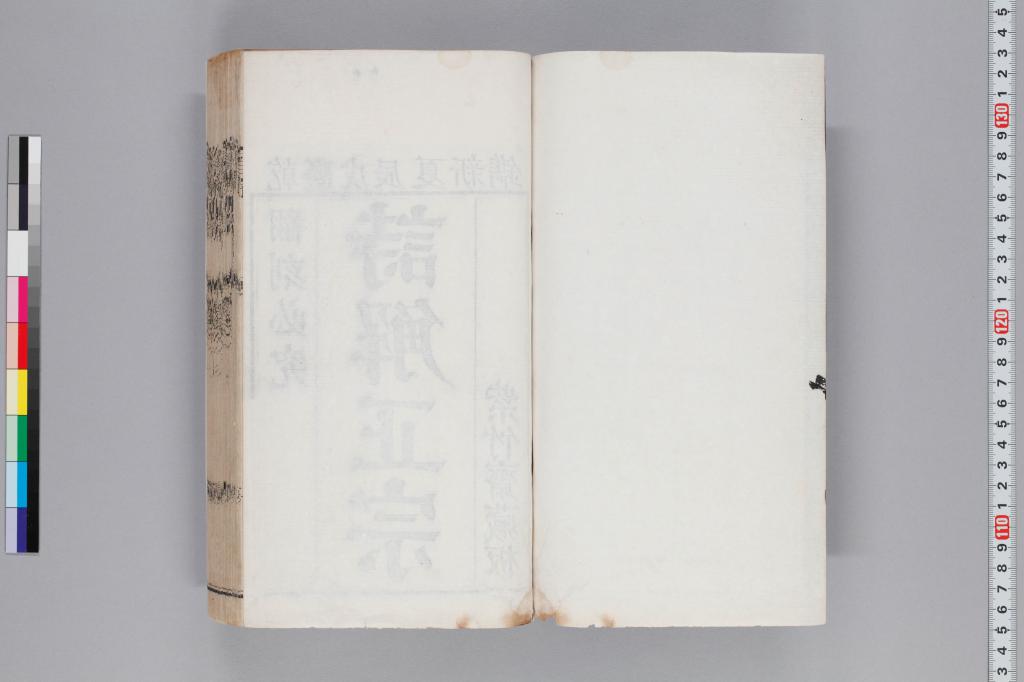 乾隆戊辰夏新鐫
翻刻必究
詩解正宗
紫竹齋藏板
5
4
3
2
1
130
9
8
7
6
5
4
3
2
1
120
9
8
7
6
5
4
3
2
1
110
9
8
7
6
5
4
3